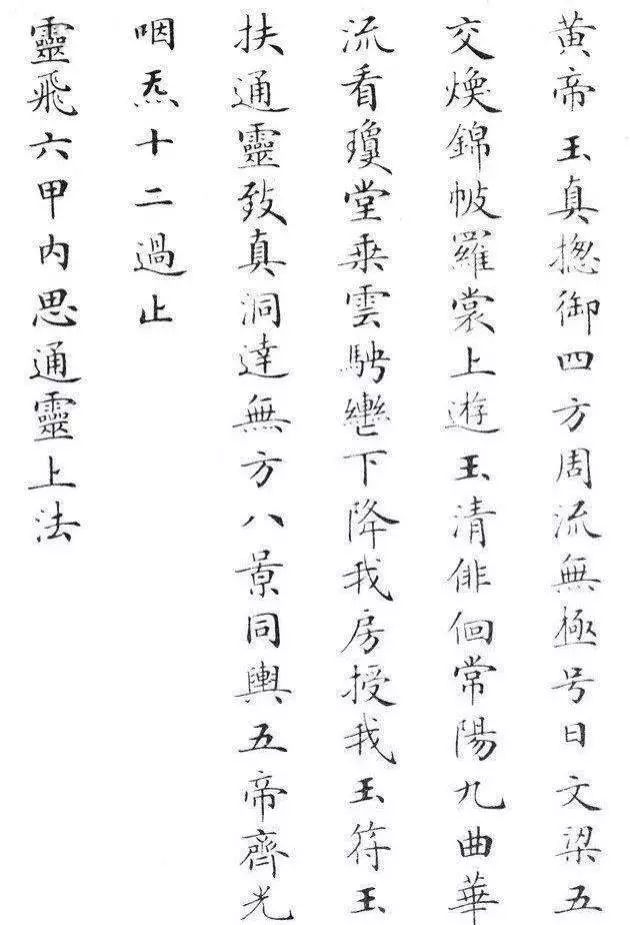 黄帝玉真揔御四方周流無極号曰文梁五
交煥錦帔羅裳上遊玉清俳佪常陽九曲華
流看瓊堂乗雲駃轡下降我房授我玉符玉
扶通靈致真洞達無方八景同輿五帝齊光
咽炁十二過止
靈飛六甲內思通靈上法